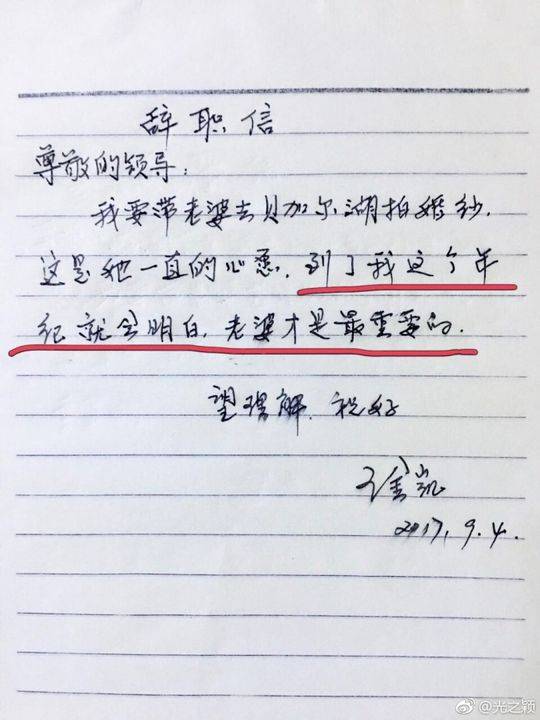 辞职信
尊敬的领导:
我要带老婆去贝加尔湖拍婚纱.
这是她一直的心愿.到了我这个年
纪就会明白.老婆才是最重要的.
望理解.祝好
凯
2017.9.4.
@光之颖